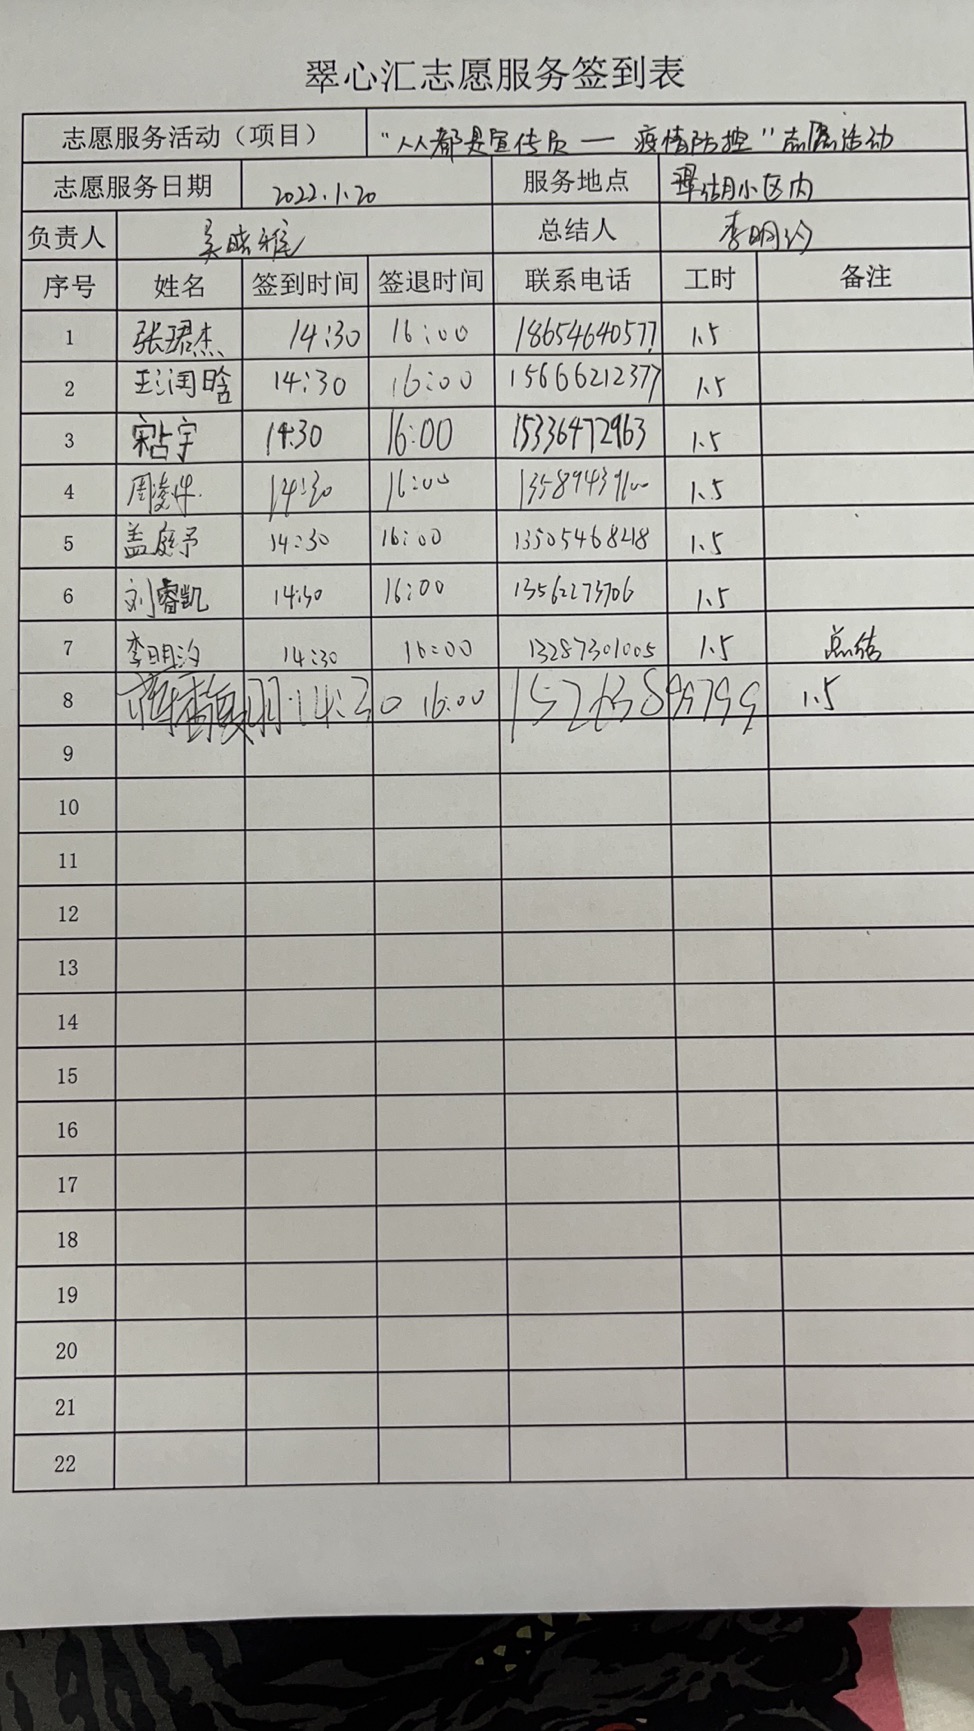 翠心汇志愿服务签到表
志愿服务活动（项目） “人人都是宣传员一疫情防控”志愿活动
志愿服务日期 2022.1.20 服务地点 小区内
负责人 总结人 李明汐
序号 姓名 签到时间 签退时间 联系电话 工时 备注
1 张珺杰 14:30 16:00 18654640577 1.5
2 14:30 16:00 15666212377 1.5
3 宋占宇 14:30 16:00 15336472963 1.5
4 14:30 16:00 1.5
5 盖庭予 14:30 16:00 13505468218 1.5
6 刘睿凯 14:30 16:00 13562273706 1.5
7 李明汐 14:30 16:00 13287301005 1.5 总结
8 14:30 16:00 1.5
9
10
11
12
13
14
15
16
17
18
19
20
21
22